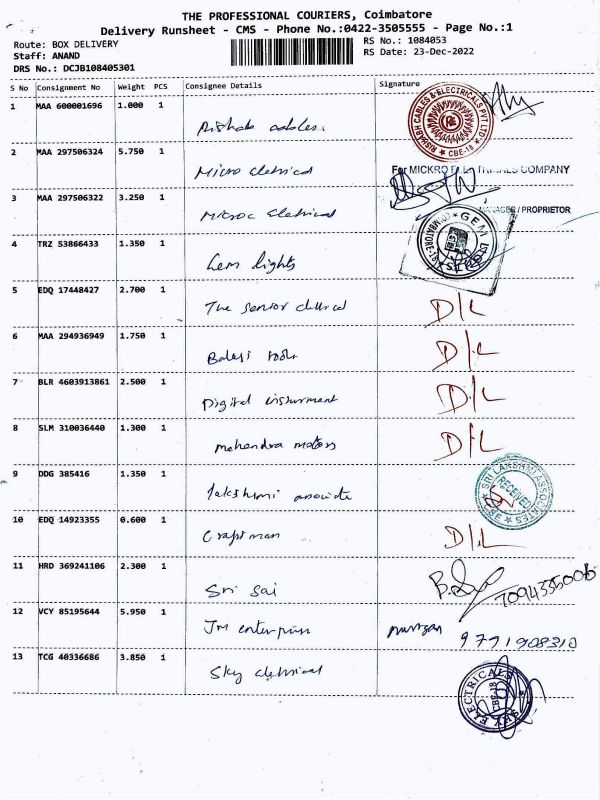 THE PROFESSIONAL COURIERS, Coimbatore
Delivery Runsheet - CMS - Phone No.:0422-3505555 - Page No.:1
Route: BOX DELIVERY
RS No.: 1084053
Staff: ANAND
RS Date: 23-Dec-2022
DRS No.: DCJB108405301
S No Consignment No Weight PCS Consignee Details Signature
1 MAA 600001696 1.000 1
RISHABH CABLES & ELECTRICALS PVT LTD CBE-18
2 MAA 297506324 5.750 1 Micro eletrical
For MICKRO ELECTRICALS COMPANY
3 MAA 297506322 3.250 1 Microc eletrical
MANAGER / PROPRIETOR
4 TRZ 53866433 1.350 1 Gem lights
GEM LIGHTS COIMBATORE-18
5 EDQ 17448427 2.700 1 The senior D/L
6 MAA 294936949 1.750 1 Balaji tools D/L
7 BLR 4603913861 2.500 1 Digital insturment D/L
8 SLM 310036440 1.300 1 mahendra motors D/L
9 DDG 385416 1.350 1 lakshmi associate
SRI LAKSHMI ASSOCIATES RECEIVED CBE
10 EDQ 14923355 0.600 1 Craftman D/L
11 HRD 369241106 2.300 1 Sri Sai
12 VCY 85195644 5.950 1 Jm enterpriss murugan 9791908310
13 TCG 40336686 3.850 1 Sky eletrical
SKY ELECTRICALS CBE-18